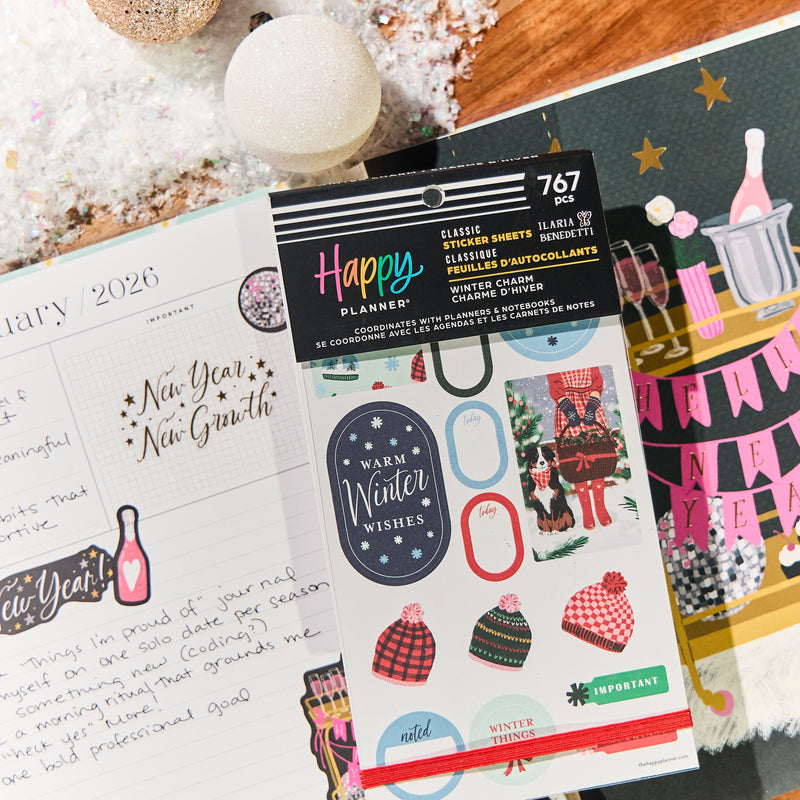 CHARME D'HIVER
767
pcs
CLASSIC
STICKER SHEETS
CLASSIQUE
FEUILLES D'AUTOCOLLANTS
ILARIA
BENEDETTI
Happy
PLANNER®
WINTER CHARM
CHARME D'HIVER
COORDINATES WITH PLANNERS & NOTEBOOKS
SE COORDONNE AVEC LES AGENDAS ET LES CARNETS DE NOTES
WARM
Winter
WISHES
today
today
IMPORTANT
noted
WINTER
THINGS
thehappyplanner.com
uary / 2026
IMPORTANT
New Year
New Growth
eaningful
bits that
ortive
New Year!
"Things I'm proud of" journal
myself on one solo date per season
something new (coding?)
a morning ritual that grounds me
"heck yes" More!
one bold professional goal
HELL
NE
YEA